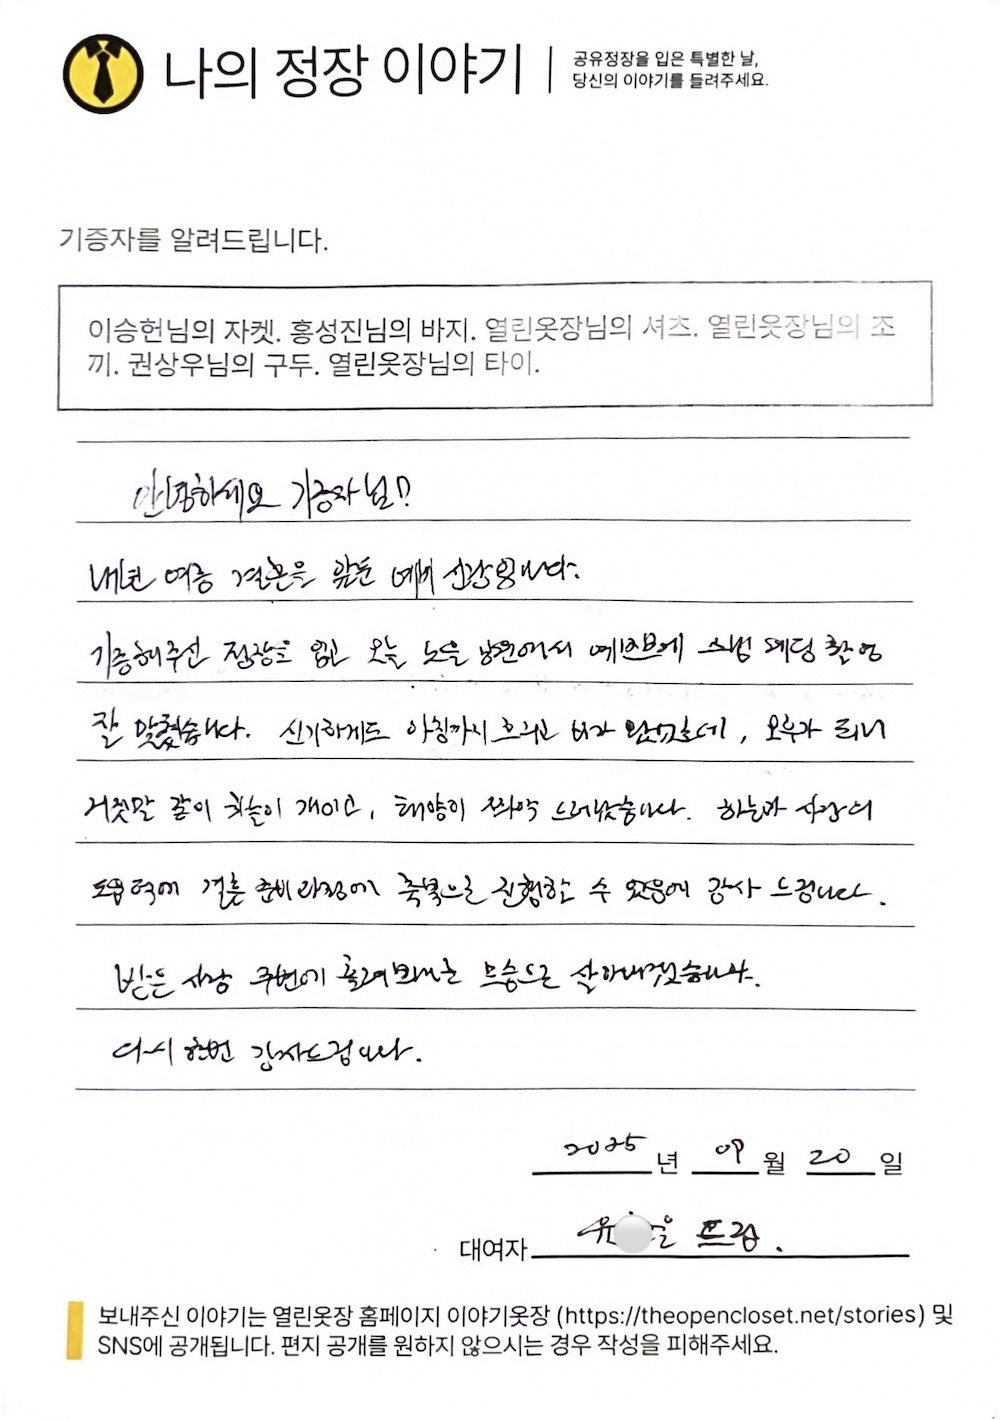 나의 정장 이야기
공유정장을 입은 특별한 날,
당신의 이야기를 들려주세요.
기증자를 알려드립니다.
이승헌님의 자켓. 홍성진님의 바지. 열린옷장님의 셔츠. 열린옷장님의 조
끼. 권상우님의 구두. 열린옷장님의 타이.
안녕하세요 기증자님!?
내년 여름 결혼을 앞둔 예비 신랑입니다.
기증해주신 정장을 입고 오늘 노을 에서 스냅 웨딩 촬영
잘 마쳤습니다. 신기하게도 아침까지 흐리고 비가 왔었는데, 오후가 되니
거짓말 같이 하늘이 개이고, 태양이 쫘악 드러났습니다. 하늘과 사장의
도움 덕에 결혼 준비과정에 축복으로 진행할 수 있음에 감사 드립니다.
받은 사랑 주변에 흘려보내는 모습으로 살아내겠습니다.
다시 한번 감사드립니다.
2025년 09월 20일
대여자 유 을 드림.
보내주신 이야기는 열린옷장 홈페이지 이야기옷장 (https://theopencloset.net/stories) 및
SNS에 공개됩니다. 편지 공개를 원하지 않으시는 경우 작성을 피해주세요.